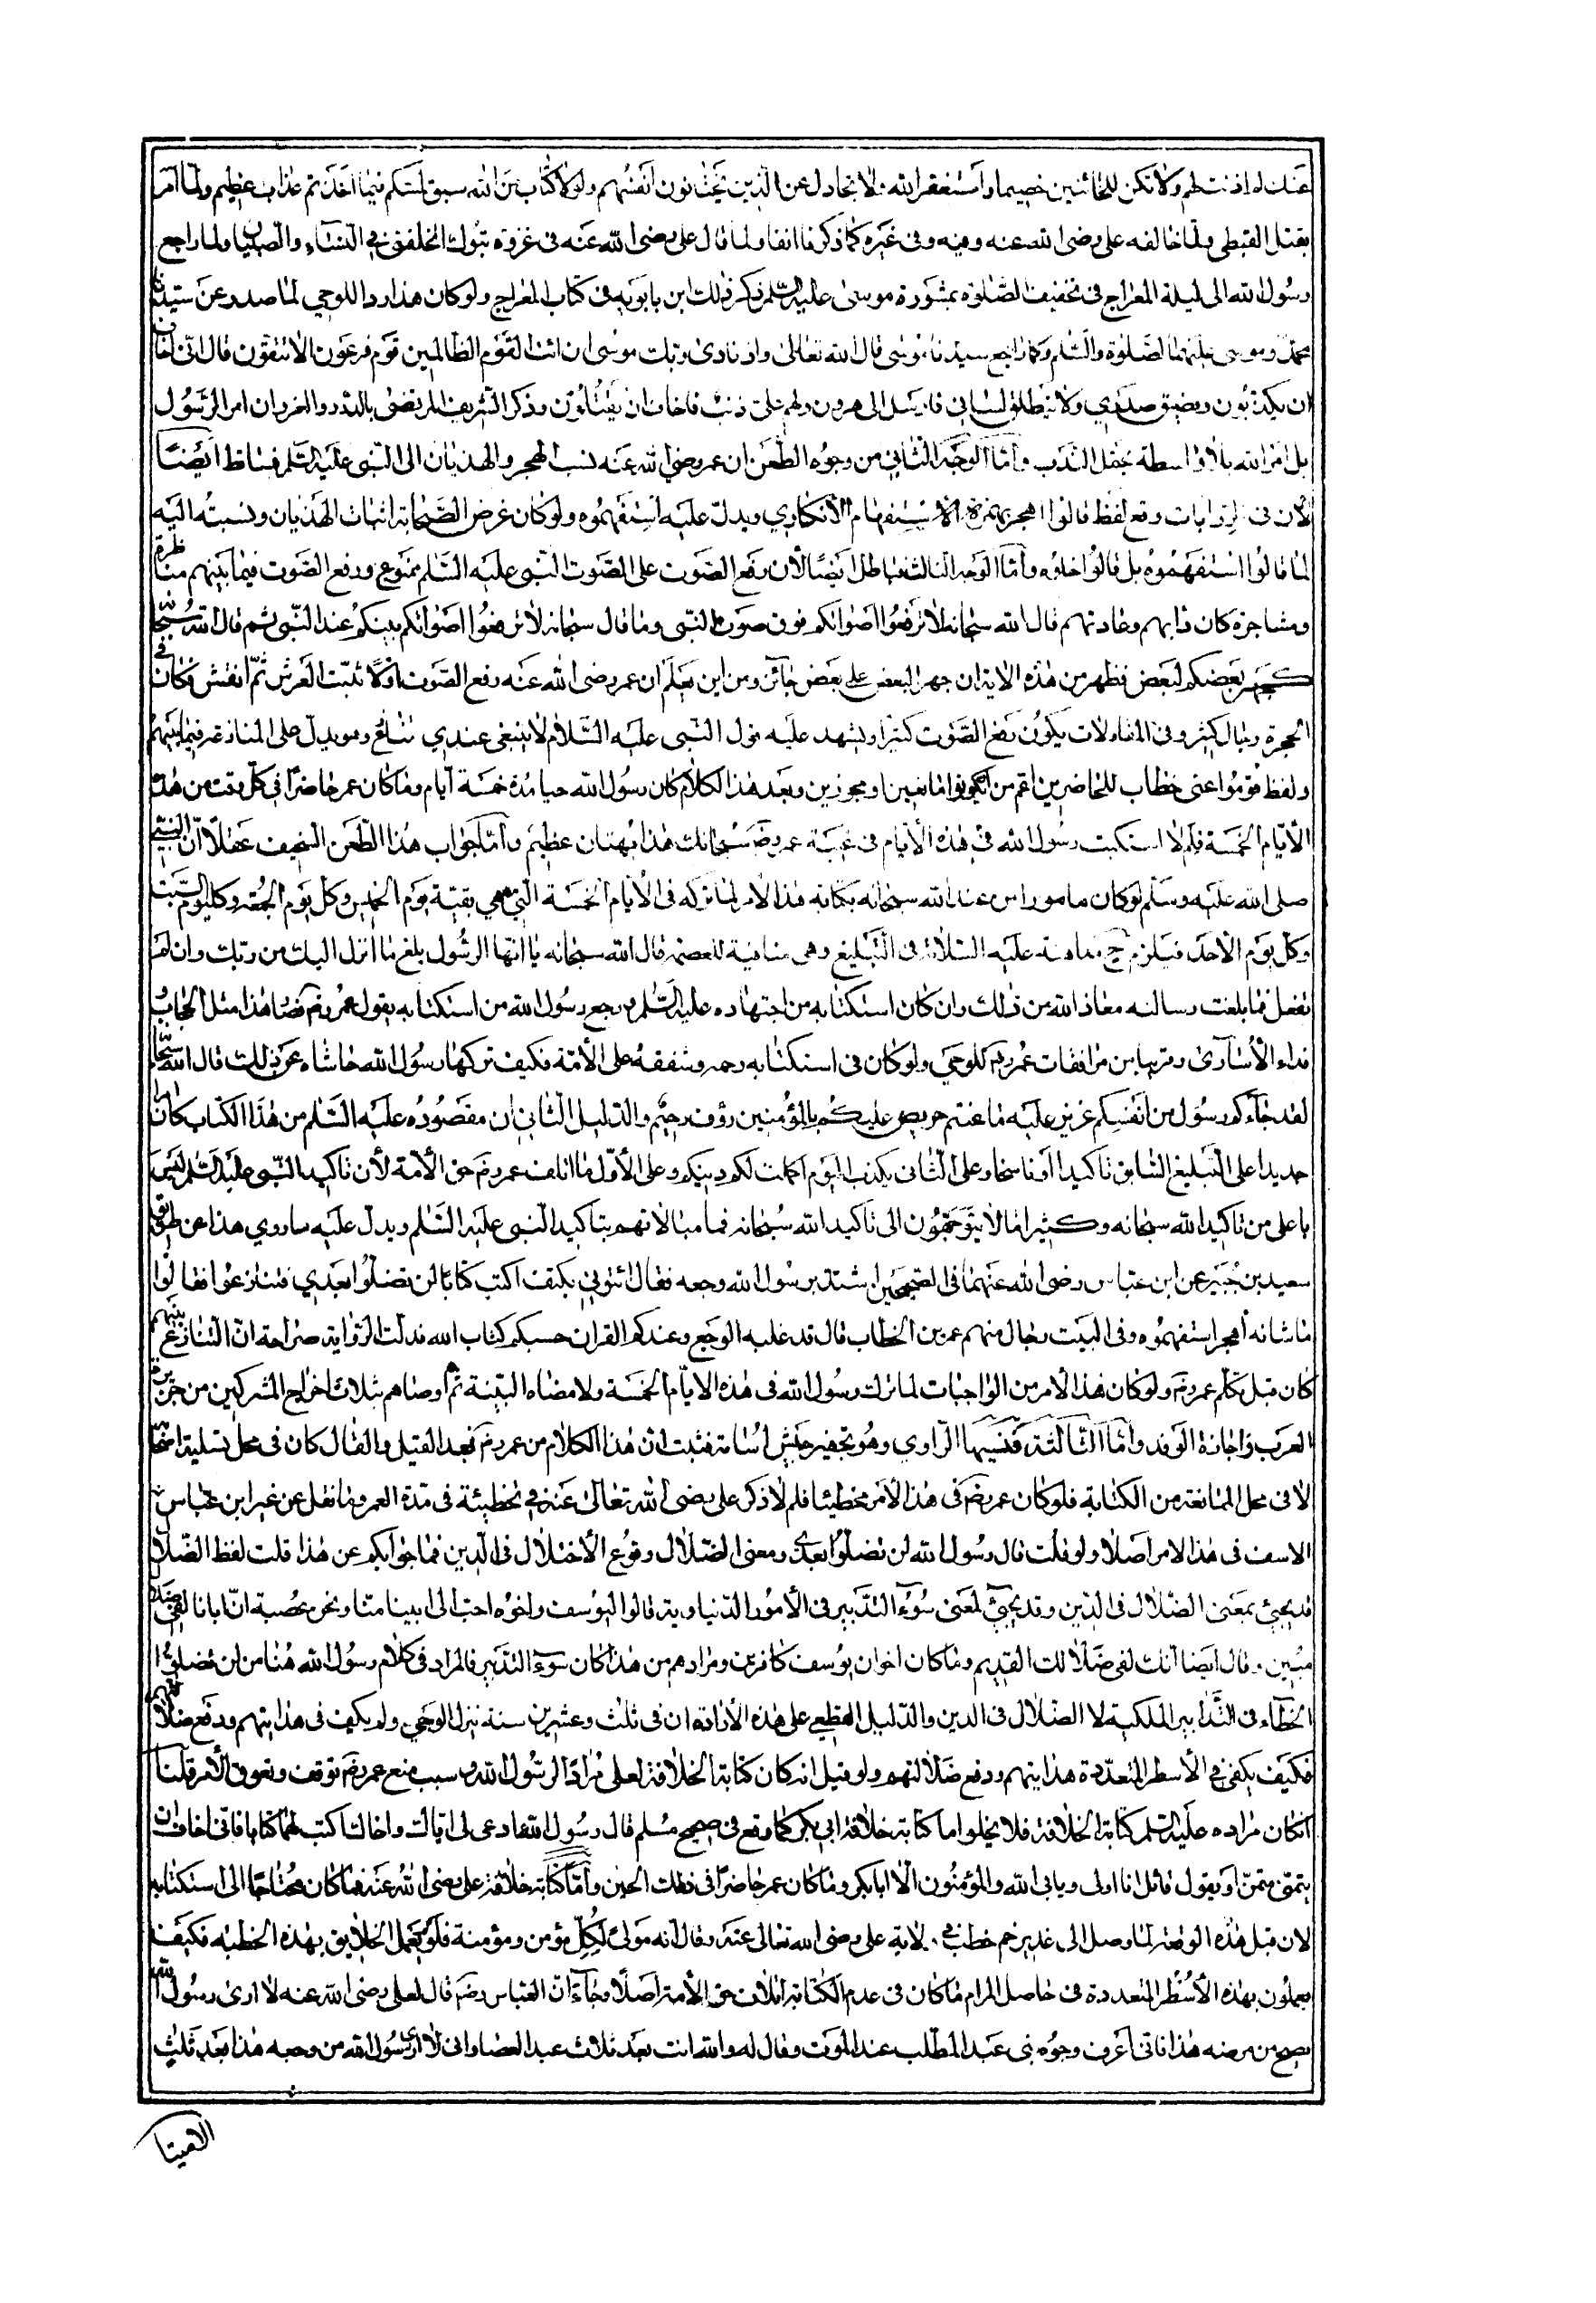 عنك لم اذنت لهم ولا تكن للخائنين خصيما واستغفر الله ولا تجادل عن الذين يختانون انفسهم ولولا كتاب من الله سبق لمسكم فيما اخذتم عذاب عظيم ولما امر
بقتل القبطى ولما خالفه على رضى الله عنه وفيه وفى غيره كما ذكرنا انفا ولما قال على رضى الله عنه فى غزوة تبوك اتخلفنى فى النساء والصبيان ولما راجع
رسول الله الى ليلة المعراج فى تخفيف الصلوة بمشورة موسى عليه السلم ذكر ذلك ابن بابويه فى كتاب المعراج ولو كان هذا رد اللوحى لما صدر عن سيدنا
محمد وموسى عليهما الصلوة والسلم وكما راجع سيدنا موسى قال الله تعالى واذ نادى ربك موسى ان ائت القوم الظالمين قوم فرعون الا يتقون قال انى اخاف
ان يكذبون ويضيق صدرى ولا ينطلق لسانى فارسل الى هرون ولهم على ذنب فاخاف ان يقتلون وذكر الشريف المرتضى بالدرر والغرر ان امر الرسول
بل امر الله بلا واسطة يحتمل الندب واما الوجه الثانى من وجوه الطعن ان عمر رضى الله عنه نسب الهجر والهذيان الى النبى عليه السلم فساقط ايضا
لان فى الروايات وقع لفظ قالوا اهجر بهمزة الاستفهام الانكارى ويدل عليه استفهموه ولو كان غرض الصحابة اثبات الهذيان ونسبته اليه
لما قالوا استفهموه بل قالوا خلوه واما الوجه الثالث فباطل ايضا لان رفع الصوت على الصوت النبى عليه السلم ممنوع ورفع الصوت فيما بينهم مناظرة
ومشاجرة كان دابهم وعادتهم قال الله سبحانه لا ترفعوا اصواتكم فوق صوت النبى وما قال سبحانه لا ترفعوا اصواتكم بينكم عند النبى ثم قال الله سبحانه
كجهر بعضكم لبعض فظهر من هذه الاية ان جهر البعض على بعض جائز ومن اين يعلم ان عمر رضى الله عنه رفع الصوت اولا ثبت العرش ثم انقش فكان فى
الحجرة رجال كثير وفى المقاولات يكون رفع الصوت كثيرا ويشهد عليه قول النبى عليه السلام لا ينبغى عندى تنازع وهو يدل على المنازعة فيما بينهم
ولفظ قوموا عنى خطاب للحاضرين اعم من ان يكونوا مانعين او مجوزين وبعد هذا الكلام كان رسول الله حيا مدة خمسة ايام وما كان عمر حاضرا فى كل وقت من هذه
الايام الخمسة فلم لا استكتب رسول الله فى هذه الايام فى غيبة عمر رضه سبحانك هذا بهتان عظيم واما الجواب هذا الطعن السخيف عقلا ان النبى
صلى الله عليه وسلم لو كان مامورا من عند الله سبحانه بكتابة هذا الامر لما تركه فى الايام الخمسة التى هى بقية يوم الخميس وكل يوم الجمعة وكل يوم السبت
وكل يوم الاحد فيلزم ح مداهنة عليه السلام فى التبليغ وهى منافية للعصمة قال الله سبحانه يا ايها الرسول بلغ ما انزل اليك من ربك وان لم
تفعل فما بلغت رسالته معاذ الله من ذلك وان كان استكتابه من اجتهاده عليه السلم ورجع رسول الله من استكتابه بقول عمر رضه فصار هذا مثل الحجاب و
فداء الاسارى وغيرها من موافقات عمر رضه للوحى ولو كان فى استكتابه رحمه وشفقه على الامة فكيف تركها رسول الله حاشاه عن ذلك قال الله سبحانه
لقد جاءكم رسول من انفسكم عزيز عليه ما عنتم حريص عليكم بالمؤمنين رؤف رحيم والدليل الثانى ان مقصوده عليه السلم من هذا الكتاب كان امرا
جديدا على التبليغ السابق تاكيدا او ناسخا وعلى الثانى يكذب اليوم اكملت لكم دينكم وعلى الاول ما اتلف عمر رضه حق الامة لان تاكيد النبى عليه السلم ليس
باعلى من تاكيد الله سبحانه وكثيرا ما لا يتوجهون الى تاكيد الله سبحانه فما مبالاتهم بتاكيد النبى عليه السلم ويدل عليه ما روى هذا عن طريق
سعيد بن جبير عن ابن عباس رضى الله عنهما فى الصحيحين اشتد برسول الله وجعه فقال ائتونى بكتف اكتب كتابا لن تضلوا بعدى فتنازعوا فقالوا
ما شانه اهجر استفهموه وفى البيت رجال منهم عمر بن الخطاب قال قد غلبه الوجع وعندكم القران حسبكم كتاب الله فدلت الرواية صراحة ان التنازع بينهم
كان قبل تكلم عمر رضه ولو كان هذا الامر من الواجبات لما ترك رسول الله فى هذه الايام الخمسة ولامضاه البتة ثم اوصاهم بثلاث اخراج المشركين من جزيرة
العرب واجازة الوفد واما الثالثة فنسيها الراوى وهو تجهيز جيش اسامة فثبت ان هذا الكلام من عمر رضه بعد القيل والقال كان فى محل تسلية اصحابه
لا فى محل الممانعة من الكتابة فلو كان عمر رضه فى هذا الامر مخطيئا فلم لا ذكر على رضى الله تعالى عنه فى تخطيئة فى مدة العمر وما نقل عن غير ابن عباس
الاسف فى هذا الامر اصلا ولو قلت قال رسول الله لن تضلوا بعدى ومعنى الضلال وقوع الاختلال فى الدين فما جوابكم عن هذا قلت لفظ الضلال
قد يجيئ بمعنى الضلال فى الدين وقد يجيئ لمعنى سوء التدبير فى الامور الدنياوية قالوا ليوسف واخوه احب الى ابينا منا ونحن عصبة ان ابانا لفى ضلال
مبين وقال ايضا انك لفى ضلالك القديم وما كان اخوان يوسف كافرين ومرادهم من هذا كان سوء التدبير فالمراد فى كلام رسول الله هنا من لن تضلوا
الخطاء فى التدابير الملكية لا الضلال فى الدين والدليل القطعى على هذه الارادة ان فى ثلث وعشرين سنة نزل الوحى ولم يكف فى هدايتهم ودفع ضلالهم
فكيف يكفى فى الاسطر المتعددة هدايتهم ودفع ضلالتهم ولو قيل انه كان كتابة الخلافة لعلى مرادا لرسول الله وسبب منع عمر رضه توقف وتعوق الامر قلنا
ان كان مراده عليه السلم كتابة الخلافة فلا يخلو اما كتابة خلافة ابى بكر كما وقع فى صحيح مسلم قال رسول الله ادعى لى اباك واخاك اكتب لهما كتابا فانى اخاف ان
يتمنى متمن او يقول قائل انا اولى ويابى الله والمؤمنون الا ابا بكر وما كان عمر حاضرا فى ذلك الحين واما كتابة خلافة على رضى الله عنه فما كان محتاجا الى استكتابه
لان قبل هذه الوقعة لما وصل الى غدير خم خطب فى ولاية على رضى الله تعالى عنه وقال انه مولى لكل مؤمن ومؤمنة فلو لم يعمل الخلايق بهذه الخطبة فكيف
يعملون بهذه الاسطر المتعددة فى حاصل المرام ما كان فى عدم الكتابة اتلاف حق الامة اصلا وجاء ان العباس رضه قال لعلى رضى الله عنه لا ارى رسول الله
يصح من مرضه هذا فانى اعرف وجوه بنى عبد المطلب عند الموت وقال له والله انت بعد ثلاث عبد العصا وانى لا ارى رسول الله من وجعه هذا بعد ثلث